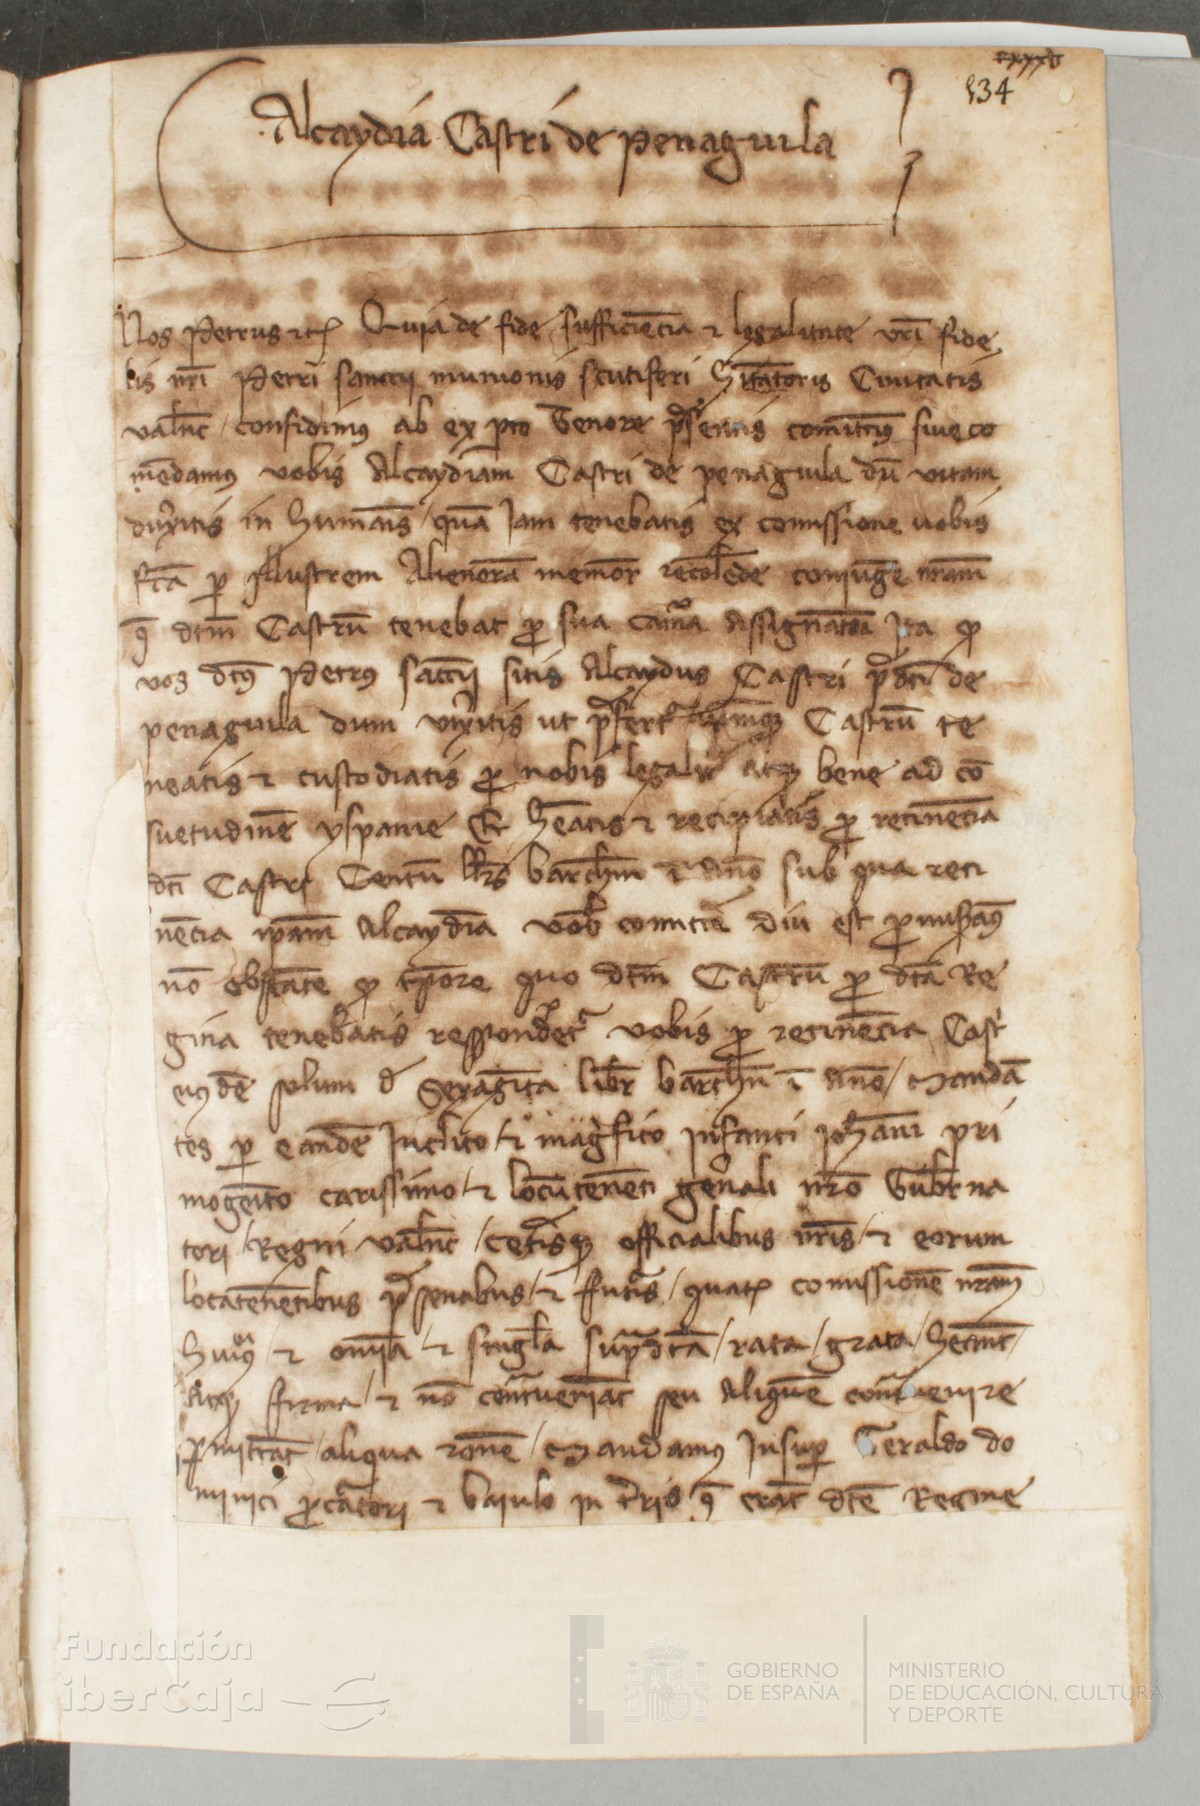 cxxxv
134
Alcaydia Castri de Penaguila
Nos Petrus etc Quia de fide sufficiencia et legalitate vri fide
lis nri Petri sanccii munionis scutiferi hitatoris Civitatis
valnc / confidimus ab ex pto Tenore presentis comittimus sive co
mendamus vobis Alcaydiam Castri de penaguila dum vitam
duxeritis in humanis / quam jam tenebatis ex comissione vobis
fcam per Illustrem Alienoram memor recolende conjugem nram
que dtm Castrum tenebat pro sua camera Assignatum Ita quod
vos dtus Petrus saccii sitis Alcaydus Castri predti de
penaguila dum vixeritis ut prefertur Castrum te
neatis et custodiatis pro nobis legaliter atque bene ad con
suetudinem yspanie Et heatis et recipiatis pro retinencia
dti Castri Centum libras barchn in anno sub qua reti
nencia ipsam Alcaydiam vobis diu est
non obstante quod tpore quo dtm Castrum pro dta Re
gina tenebatis respondebatur vobis pro retinencia Castri
eiusdem solum de sexaginta libr barchn in anno / Mandan
tes per eandem Inclito et magnifico Infanti Johanni pri
mogenito carissimo et locumtenenti generali nro Guberna
tori / Regni valnc / ceterisque officialibus nris / et eorum
locatenentibus presentibus / et futuris / quatenus comissionem nram
huiusmodi et omnia et singula supradicta / rata / grata / heant /
Atque firma / et non contraveniant seu aliquem contravenire
permittant / aliqua racione / Mandamus Insuper Geraldo do
minici procuratori et baiulo in terris que erant dte Regine
Fundación
iberCaja
GOBIERNO
DE ESPAÑA
MINISTERIO
DE EDUCACIÓN, CULTURA
Y DEPORTE